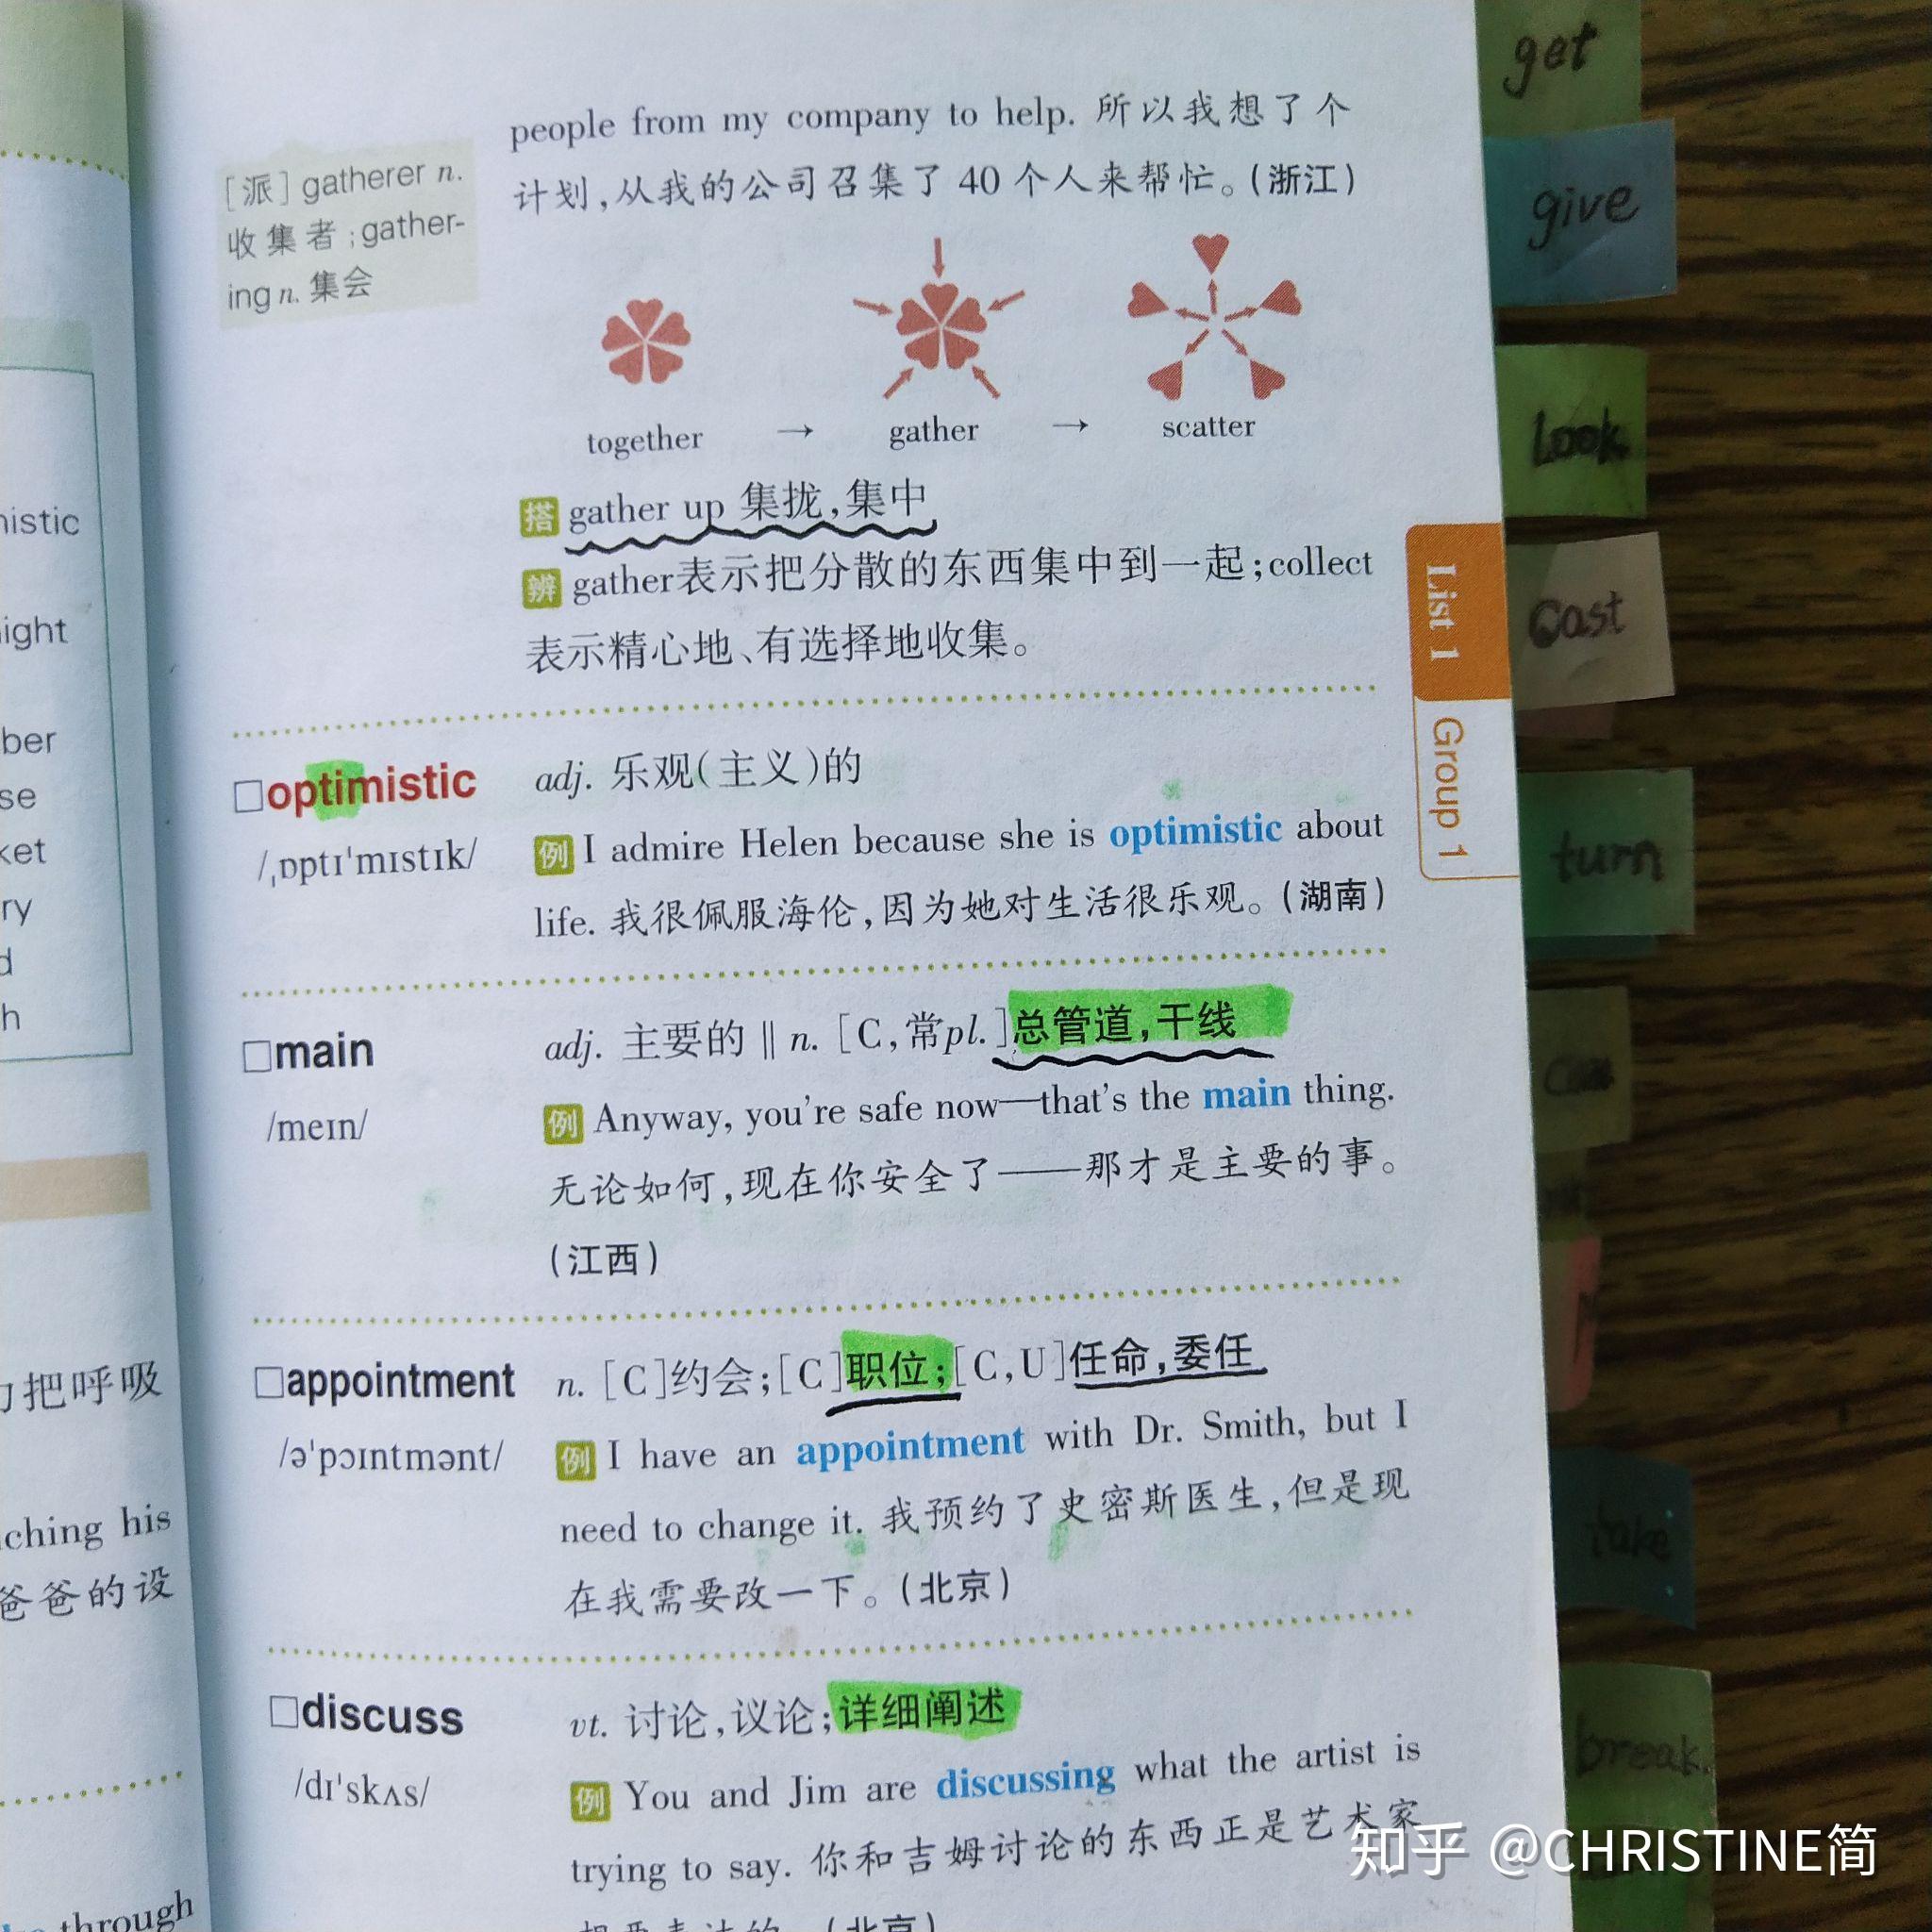 people from my company to help. 所以我想了个
计划,从我的公司召集了 40 个人来帮忙。(浙江)
[派] gatherer n.
收集者;gather-
ing n. 集会
together → gather → scatter
搭 gather up 集拢,集中
辨 gather表示把分散的东西集中到一起;collect
表示精心地、有选择地收集。
□optimistic adj. 乐观(主义)的
/ˌɒptɪˈmɪstɪk/ 例 I admire Helen because she is optimistic about
life. 我很佩服海伦,因为她对生活很乐观。(湖南)
□main adj. 主要的 ‖ n. [C,常pl.]总管道,干线
/meɪn/ 例 Anyway, you're safe now—that's the main thing.
无论如何,现在你安全了——那才是主要的事。
(江西)
□appointment n. [C]约会;[C]职位;[C,U]任命,委任
/əˈpɔɪntmənt/ 例 I have an appointment with Dr. Smith, but I
need to change it. 我预约了史密斯医生,但是现
在我需要改一下。(北京)
□discuss vt. 讨论,议论;详细阐述
/dɪˈskʌs/ 例 You and Jim are discussing what the artist is
trying to say. 你和吉姆讨论的东西正是艺术家
(北京)
List 1
Group 1
get
give
Look
cost
turn
take
break
nistic
ight
ber
se
ket
ry
d
h
把呼吸
ching his
爸爸的设
through
知乎 @CHRISTINE简